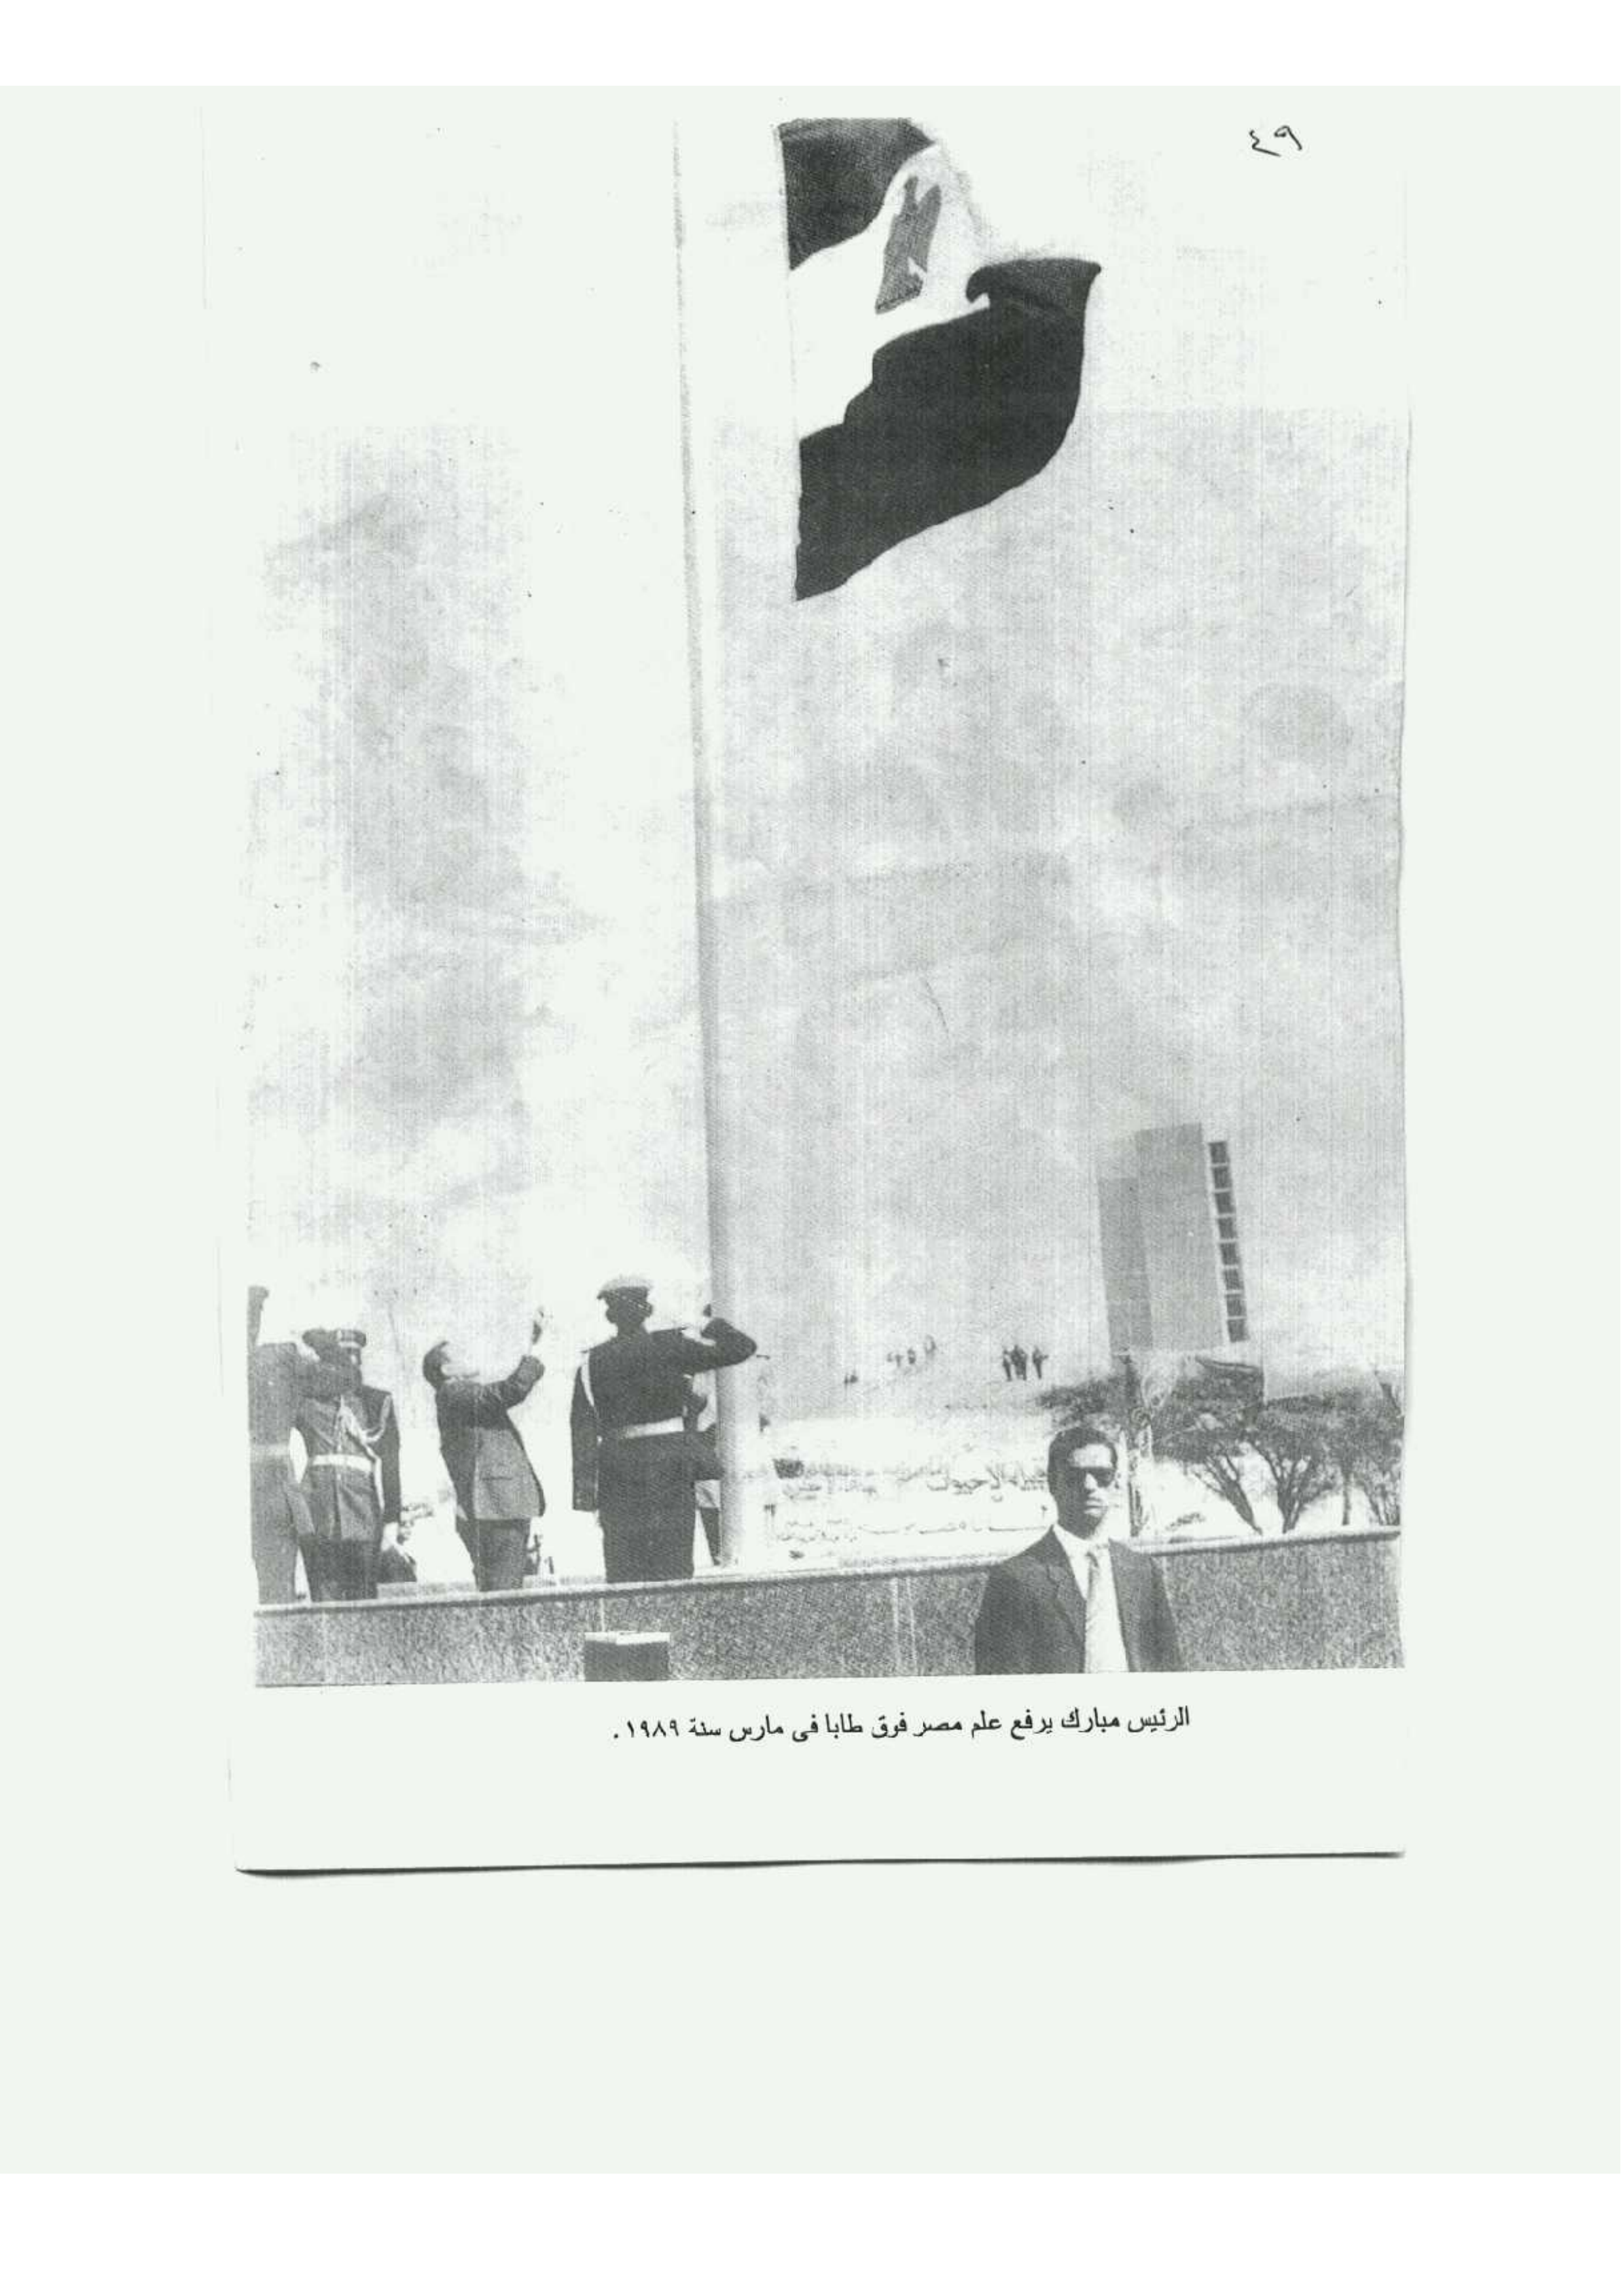 ٤٩
الرئيس مبارك يرفع علم مصر فوق طابا فى مارس سنة ١٩٨٩ .